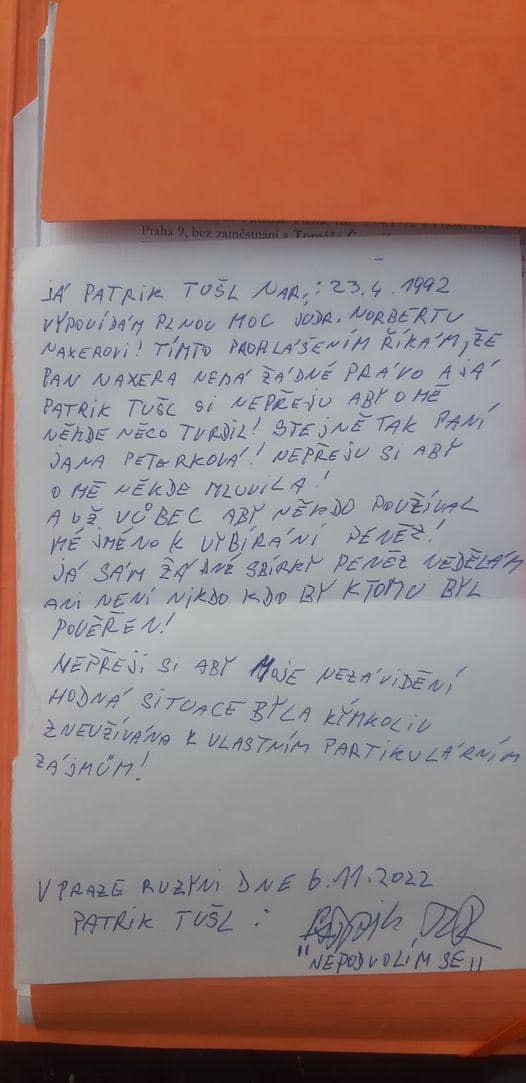 Praha 9, bez zaměstnání a Tomáše
JÁ PATRIK TUŠL NAR.: 23.4.1992
VYPOVÍDÁM PLNOU MOC JUDR. NORBERTU
NAXEROVI! TÍMTO PROHLÁŠENÍM ŘÍKÁM, ŽE
PAN NAXERA NEMÁ ŽÁDNÉ PRÁVO A JÁ
PATRIK TUŠL SI NEPŘEJU ABY O MĚ
NĚKDE NĚCO TVRDIL! STEJNĚ TAK PANÍ
JANA PETERKOVÁ! NEPŘEJU SI ABY
O MĚ NĚKDE MLUVILA!
A UŽ VŮBEC ABY NĚKDO POUŽÍVAL
MÉ JMÉNO K VYBÍRÁNÍ PENĚZ!
JÁ SÁM ŽÁDNÉ SBÍRKY PENĚZ NEDĚLÁM
ANI NENÍ NIKDO KDO BY K TOMU BYL
POVĚŘEN!
NEPŘEJI SI ABY MOJE NEZÁVIDĚNÍ
HODNÁ SITUACE BYLA KÝMKOLIV
ZNEUŽÍVÁNA K VLASTNÍM PARTIKULÁRNÍM
ZÁJMŮM!
V PRAZE RUZYNI DNE 6.11.2022
PATRIK TUŠL :
"NEPODVOLÍM SE"